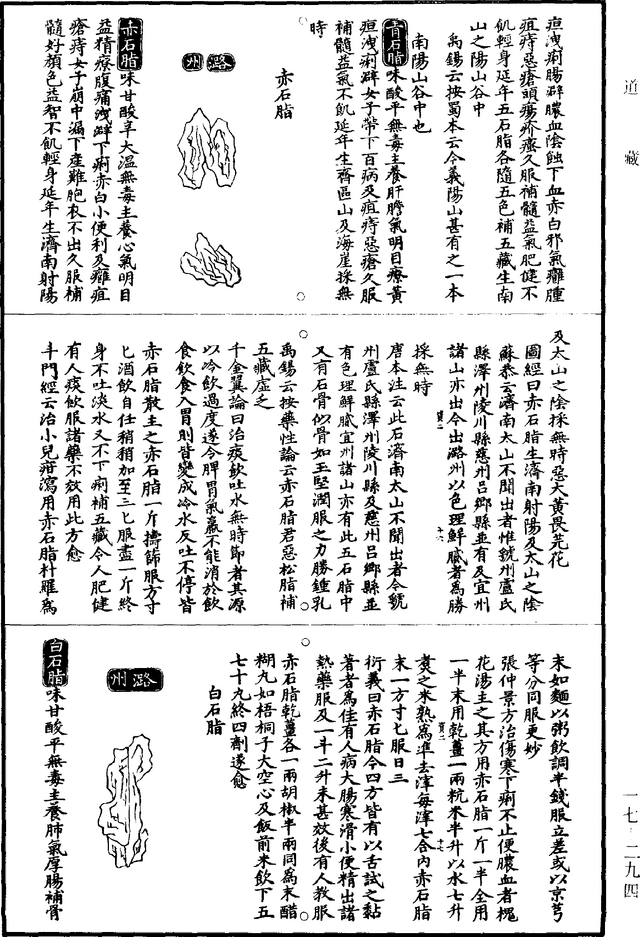 道藏
疸洩痢腸澼膿血陰蝕下血赤白邪氣癰腫
疽痔惡瘡頭瘍疥瘙久服補髓益氣肥健不
飢輕身延年五石脂各隨五色補五藏生南
山之陽山谷中
禹錫云按蜀本云今義陽山甚有之一本
南陽山谷中也
青石脂味酸平無毒主養肝膽氣明目療黃
疸洩痢澼女子帶下百病及疽痔惡瘡久服
補髓益氣不飢延年生齊區山及海崖採無
時
赤石脂
潞州
赤石脂味甘酸辛大溫無毒主養心氣明目
益精療腹痛洩澼下痢赤白小便利及癰疽
瘡痔女子崩中漏下產難胞衣不出久服補
髓好顏色益智不飢輕身延年生濟南射陽
及太山之陰採無時惡大黃畏芫花
圖經曰赤石脂生濟南射陽及太山之陰
蘇恭云濟南太山不聞出者惟虢州盧氏
縣澤州陵川縣慈州呂鄉縣並有及宜州
諸山亦出今出潞州以色理鮮膩者為勝
採無時
唐本注云此石濟南太山不聞出者今虢
州盧氏縣澤州陵川縣及慈州呂鄉縣並
有色理鮮膩宜州諸山亦有此五石脂中
又有石骨似骨如玉堅潤服之力勝鍾乳
禹錫云按藥性論云赤石脂君惡松脂補
五藏虛乏
千金翼論曰治痰飲吐水無時節者其源
以冷飲過度遂令脾胃氣羸不能消於飲
食飲食入胃則皆變成冷水反吐不停皆
赤石脂散主之赤石脂一斤擣篩服方寸
匕酒飲自任稍稍加至三匕服盡一斤終
身不吐淡水又不下痢補五藏令人肥健
有人痰飲服諸藥不效用此方愈
斗門經云治小兒疳瀉用赤石脂杵羅為
末如麵以粥飲調半錢服立差或以京芎
等分同服更妙
張仲景方治傷寒下痢不止便膿血者桃
花湯主之其方用赤石脂一斤一半全用
一半末用乾薑一兩秔米半升以水七升
煑之米熟為準去滓每滓七合內赤石脂
末一方寸匕服日三
衍義曰赤石脂今四方皆有以舌試之黏
著者為佳有人病大腸寒滑小便精出諸
熱藥服及一斗二升未甚效後有人教服
赤石脂乾薑各一兩胡椒半兩同為末醋
糊丸如梧桐子大空心及飯前米飲下五
七十丸終四劑遂愈
白石脂
潞州
白石脂味甘酸平無毒主養肺氣厚腸補骨
一七·二九四